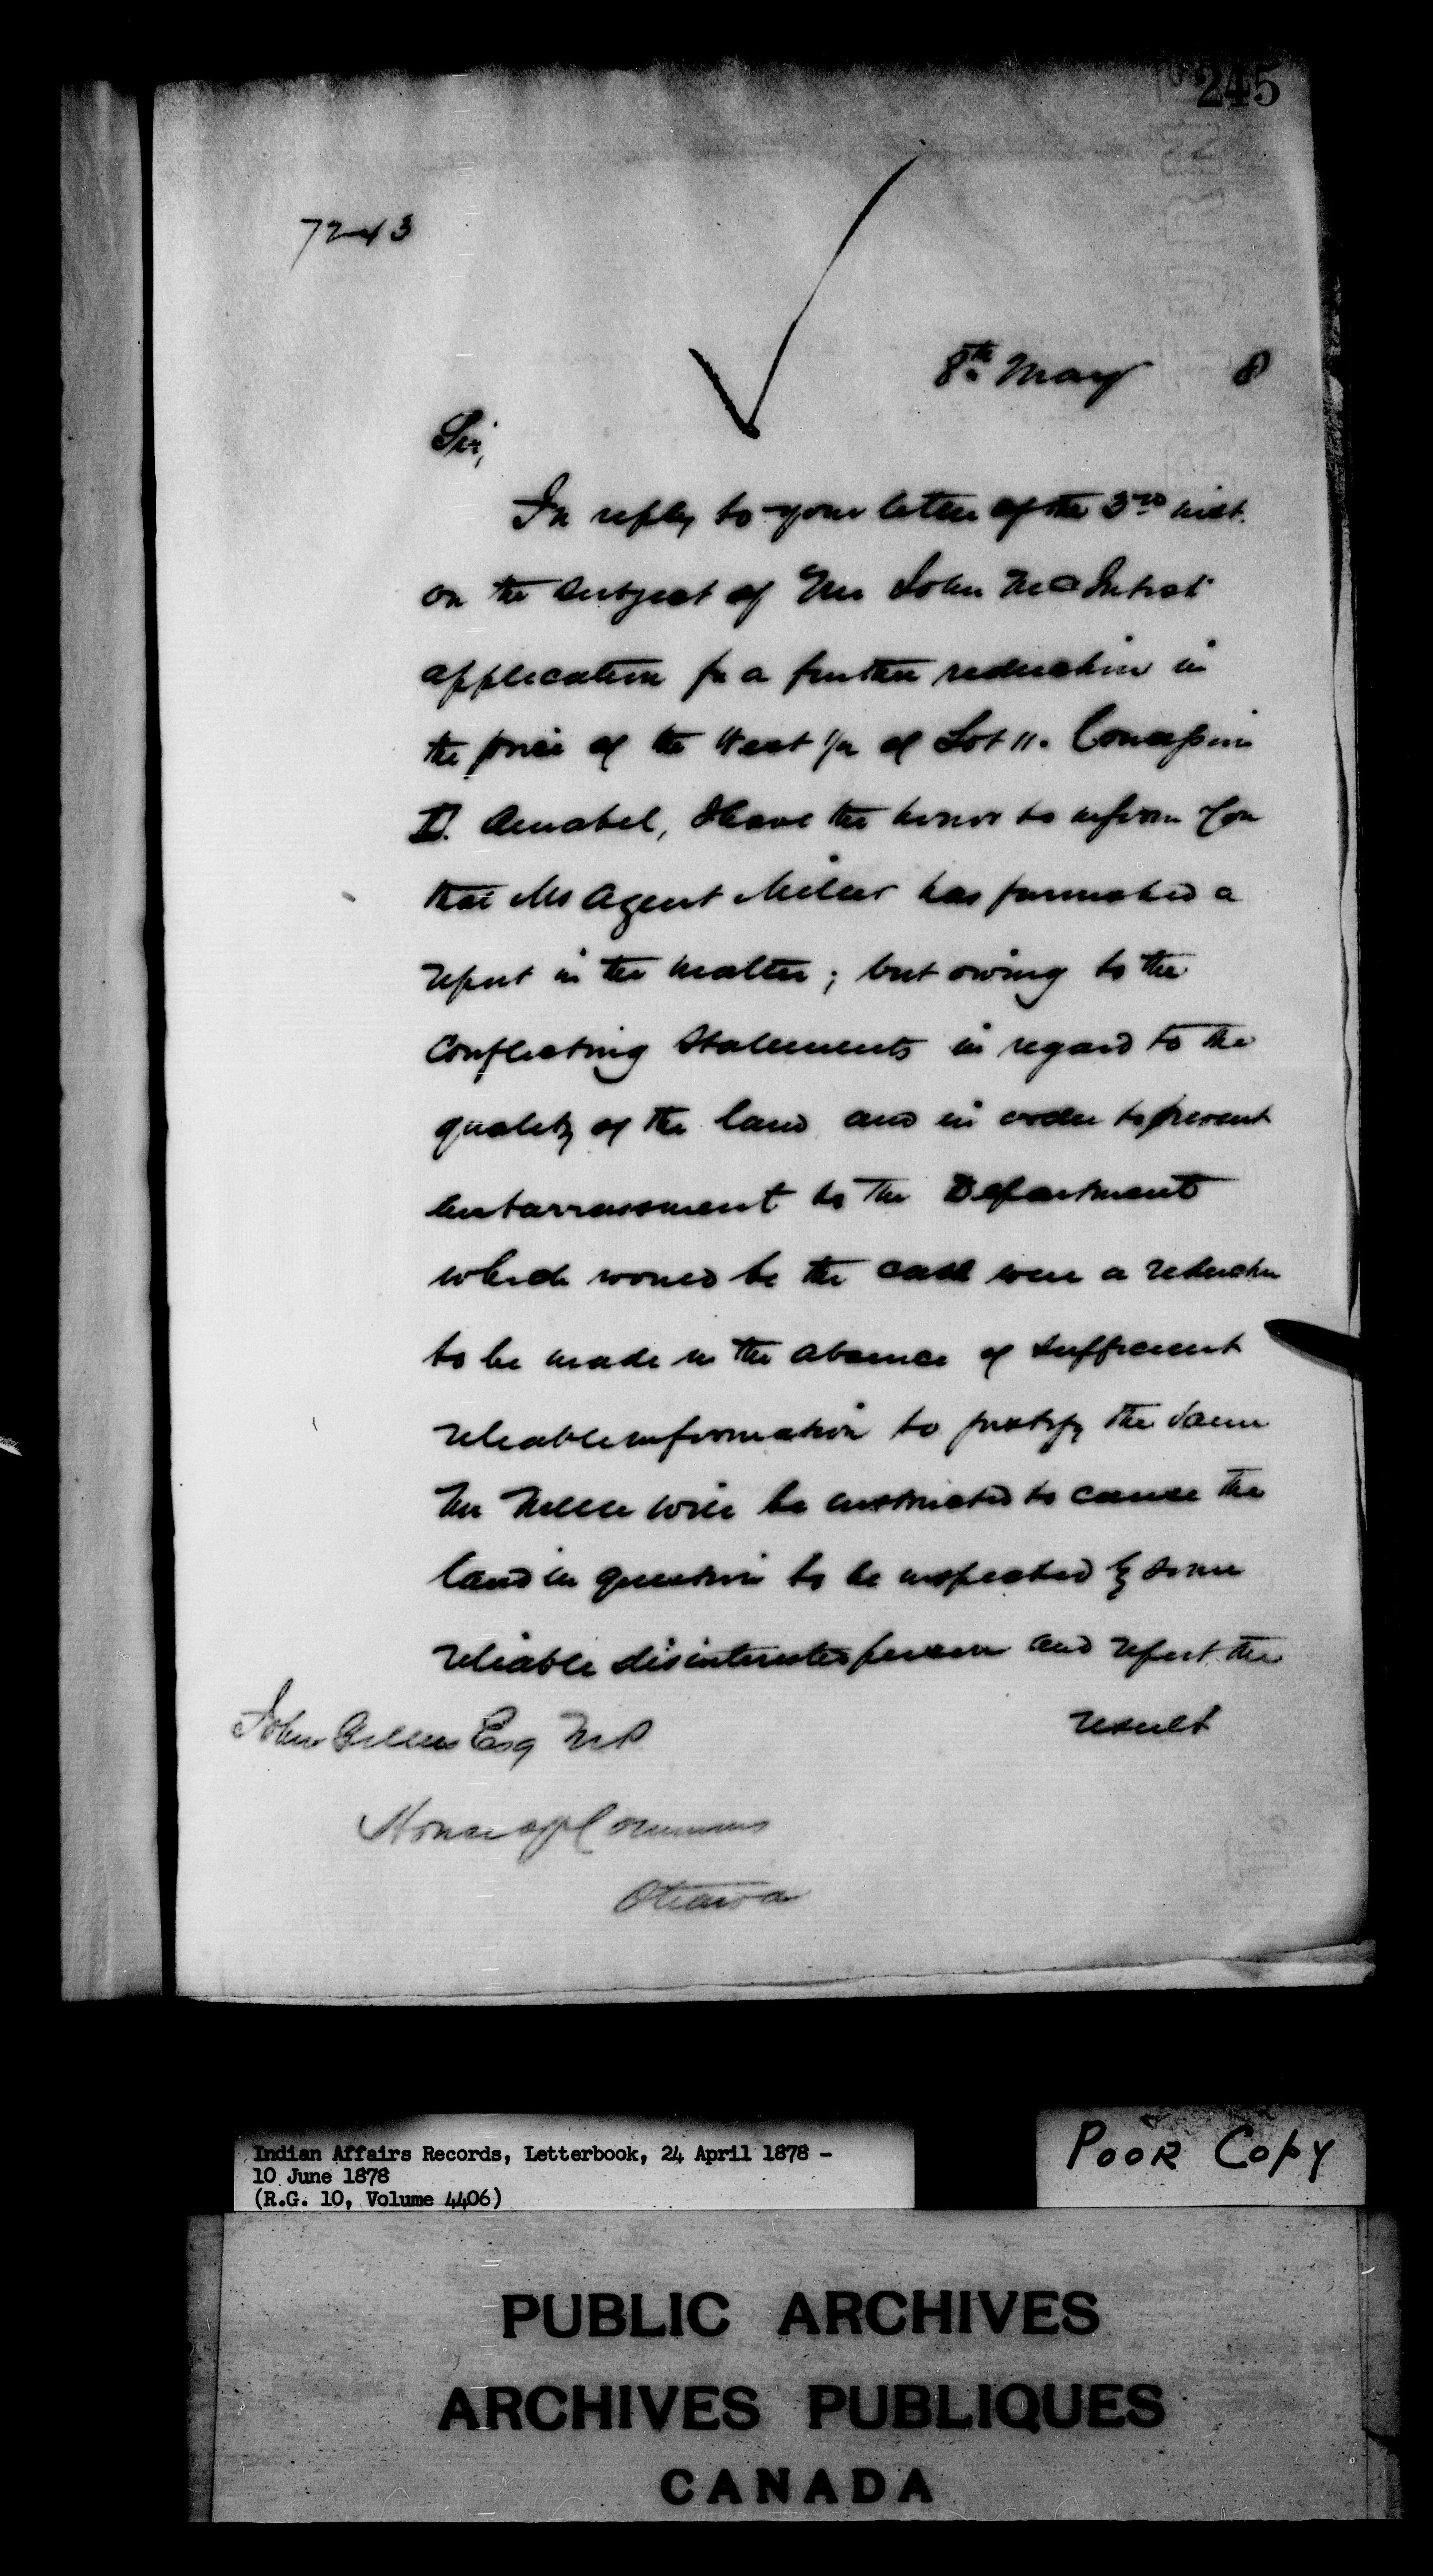 245
7243
8th May 8
Sir,
In reply to your letter of the 3rd inst.
on the subject of Mr John
application for a further reduction in
the price of the West 1/2 of Lot 11. Concession
Amabel, I have the honor to inform you
that Mr Agent Miller has furnished a
report in the matter; but owing to the
conflicting statements in regard to the
quality of the land and in order to prevent
embarrassment to the Department
which would be the case were a reduction
to be made in the absence of sufficient
reliable information to justify the same
Mr Miller will be instructed to cause the
land in question to be inspected by some
reliable disinterested person and report the
result
John Gillies Esq M.P.
House of Commons
Ottawa
Indian Affairs Records, Letterbook, 24 April 1878 -
10 June 1878
(R.G. 10, Volume 4406)
POOR COPY
PUBLIC ARCHIVES
ARCHIVES PUBLIQUES
CANADA